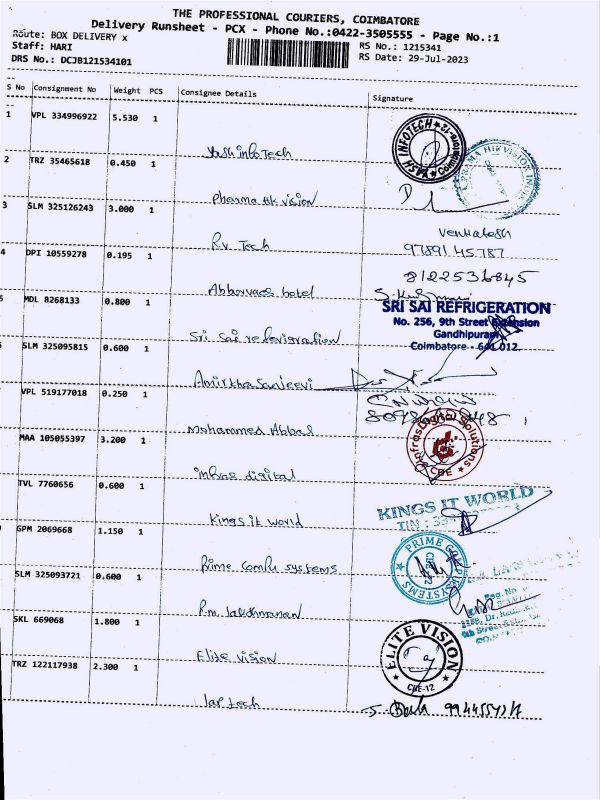 THE PROFESSIONAL COURIERS, COIMBATORE
Delivery Runsheet - PCX - Phone No.:0422-3505555 - Page No.:1
Route: BOX DELIVERY x
Staff: HARI
RS No.: 1215341
DRS No.: DCJB121534101
RS Date: 29-Jul-2023
S No Consignment No Weight PCS Consignee Details Signature
1 VPL 334996922 5.530 1
Yash infotech
YASH INFOTECH
2 TRZ 35465618 0.450 1
pharma hk vision
3 SLM 325126243 3.000 1
Venkatesh
Rv. Tech 9789145787
4 DPI 10559278 0.195 1
8122536845
Abbarvaes hotel
MDL 8268133 0.800 1
SRI SAI REFRIGERATION
No. 256, 9th Street Extension
Gandhipuram
Sri Sai refrigiration
Coimbatore - 641 012.
SLM 325095815 0.600 1
Amirtha Sanjeevi
VPL 519177018 0.250 1
Mohammed Abbas
MAA 105055397 3.200 1
Infras Digital Solutions
CBE
infras digital
TVL 7760656 0.600 1
KINGS IT WORLD
TIN : 33
Kings it world
GPM 2069668 1.150 1
PRIME COMP SYSTEMS
Prime Compu systems
SLM 325093721 0.600 1
Reg. No
R.m. lakshmanan
SKL 669068 1.800 1
ELITE VISION
CBE-12
Elite vision
TRZ 122117938 2.300 1
lap tech